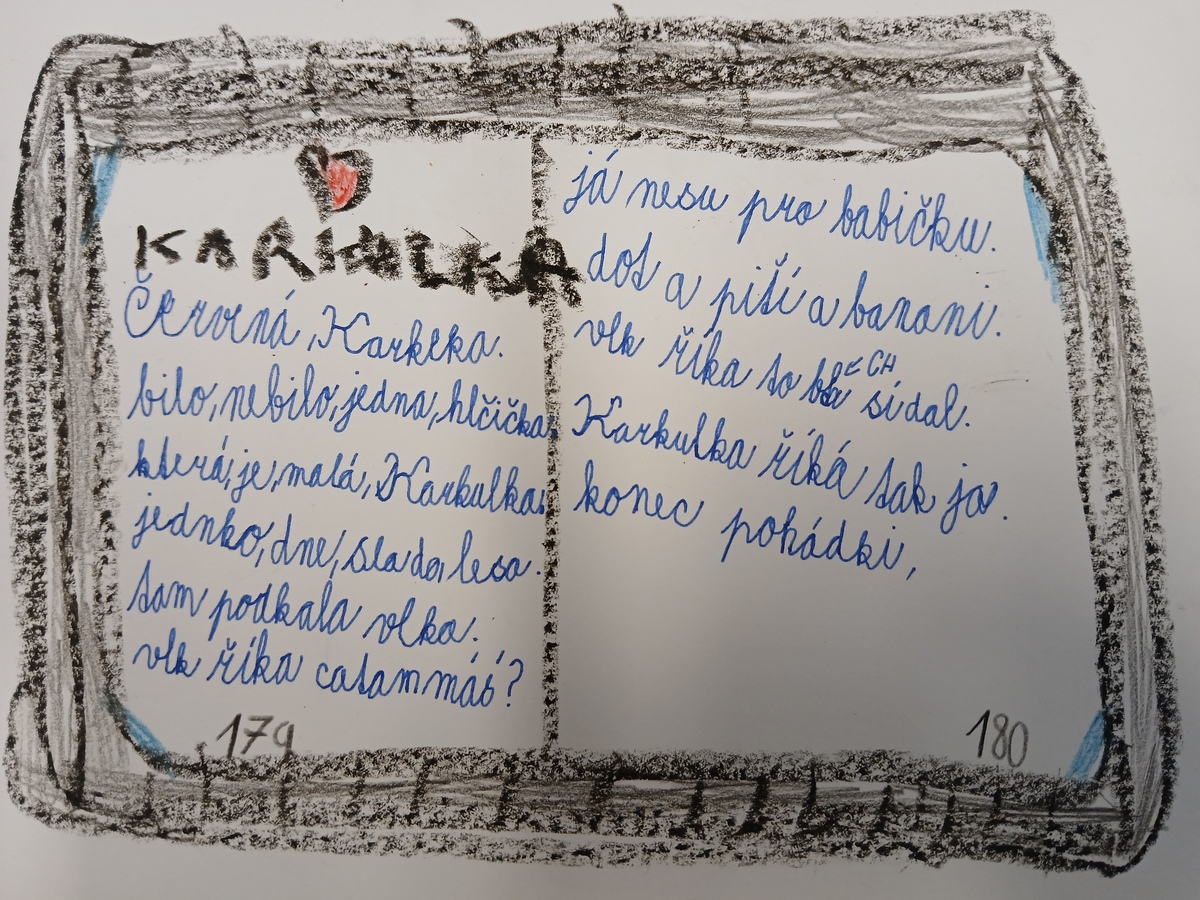 KARKULKA
Červená, Karklka.
bilo, nebilo, jedna, hlčička.
která, je, malá, Karkulka.
jednko, dne, sla do, lesa.
tam podkala vlka.
vlk říka catam máš?
179
já nesu pro babičku.
dot a pití a banani.
vlk říka to CH
si dal.
Karkulka říká tak jo.
konec pohádki,
180